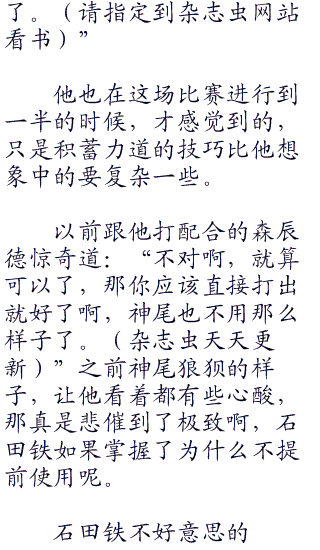 了。（请指定到杂志虫网站
看书）”
他也在这场比赛进行到
一半的时候，才感觉到的，
只是积蓄力道的技巧比他想
象中的要复杂一些。
以前跟他打配合的森辰
德惊奇道：“不对啊，就算
可以了，那你应该直接打出
就好了啊，神尾也不用那么
样子了。（杂志虫天天更
新）”之前神尾狼狈的样
子，让他看着都有些心酸，
那真是悲催到了极致啊，石
田铁如果掌握了为什么不提
前使用呢。
石田铁不好意思的